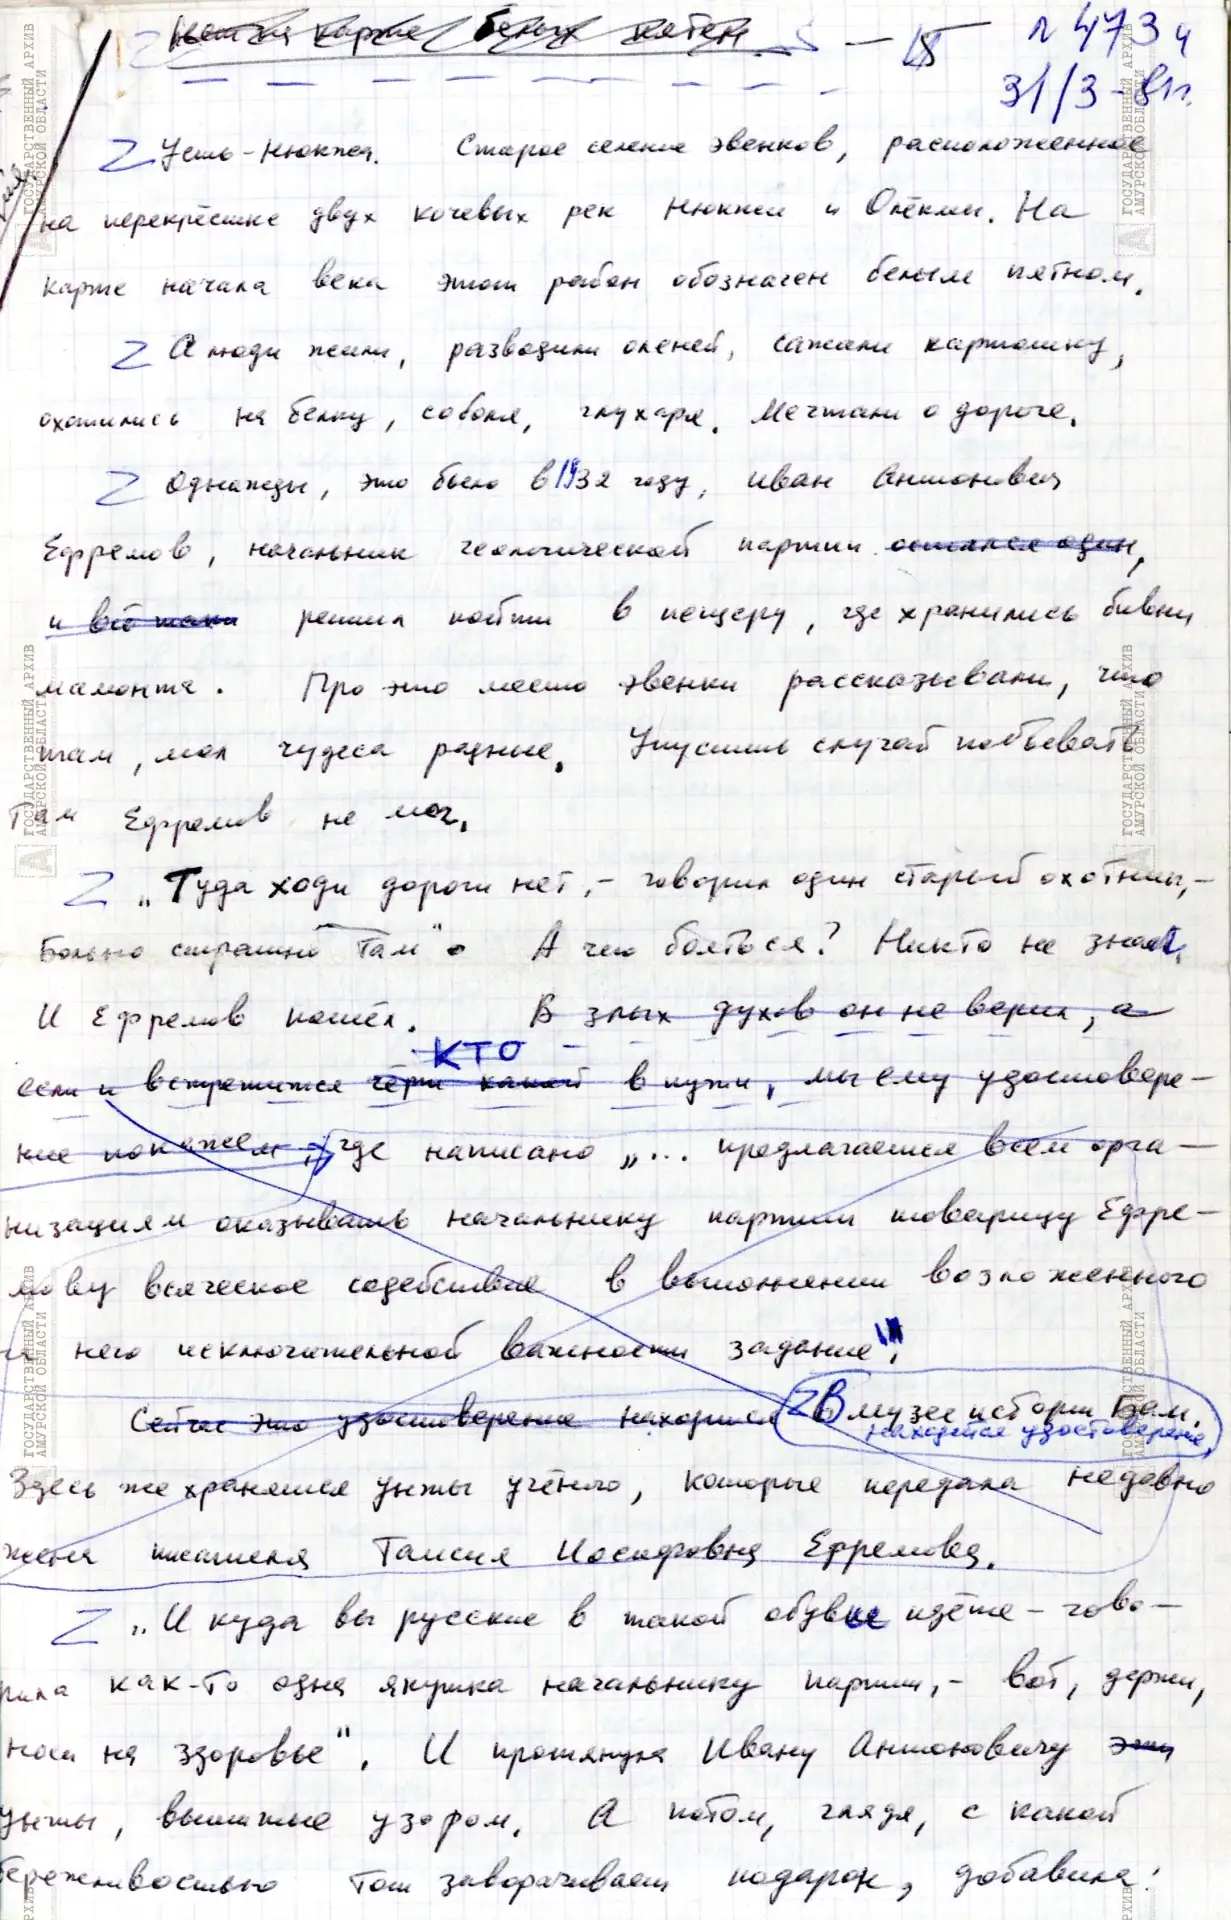 Нет на карте белых пятен. — 15 л 473 ч
31/3-81г.
Усть-Нюкжа. Старое селение эвенков, расположенное
на перекрёстке двух кочевых рек Нюкжи и Олёкмы. На
карте начала века этот район обозначен белым пятном.
А люди жили, разводили оленей, сажали картошку,
охотились на белку, соболя, глухаря. Мечтали о дороге.
Однажды, это было в 1932 году, Иван Антонович
Ефремов, начальник геологической партии остался один,
и всё таки решил пойти в пещеру, где хранились бивни
мамонта. Про это место эвенки рассказывали, что
там, мол чудеса разные. Упустить случай побывать
там Ефремов не мог.
„Туда ходи дороги нет, - говорил один старый охотник, -
Больно страшно там". А чего бояться? Никто не знает.
И Ефремов пошёл. В злых духов он не верил, а
кто
если и встретится чёрт какой в пути, мы ему удостовере-
ние покажем, где написано „... предлагается всем орга-
низациям оказывать начальнику партии товарищу Ефре-
мову всяческое содействие в выполнении возложенного
него исключительной важности задание".
Сейчас это удостоверение находится В музее истории Бам.
находится удостоверение
Здесь же хранятся унты учёного, которые передала недавно
жена писателя Таисия Иосифовна Ефремова.
„И куда вы русские в такой обувке идёте - гово-
рила как-то одна якутка начальнику партии, - вот, держи,
носи на здоровье". И протянула Ивану Антоновичу эти
унты, вышитые узором. А потом, глядя, с какой
бережливостью тот заворачивает подарок, добавила:
ГОСУДАРСТВЕННЫЙ АРХИВ
АМУРСКОЙ ОБЛАСТИ